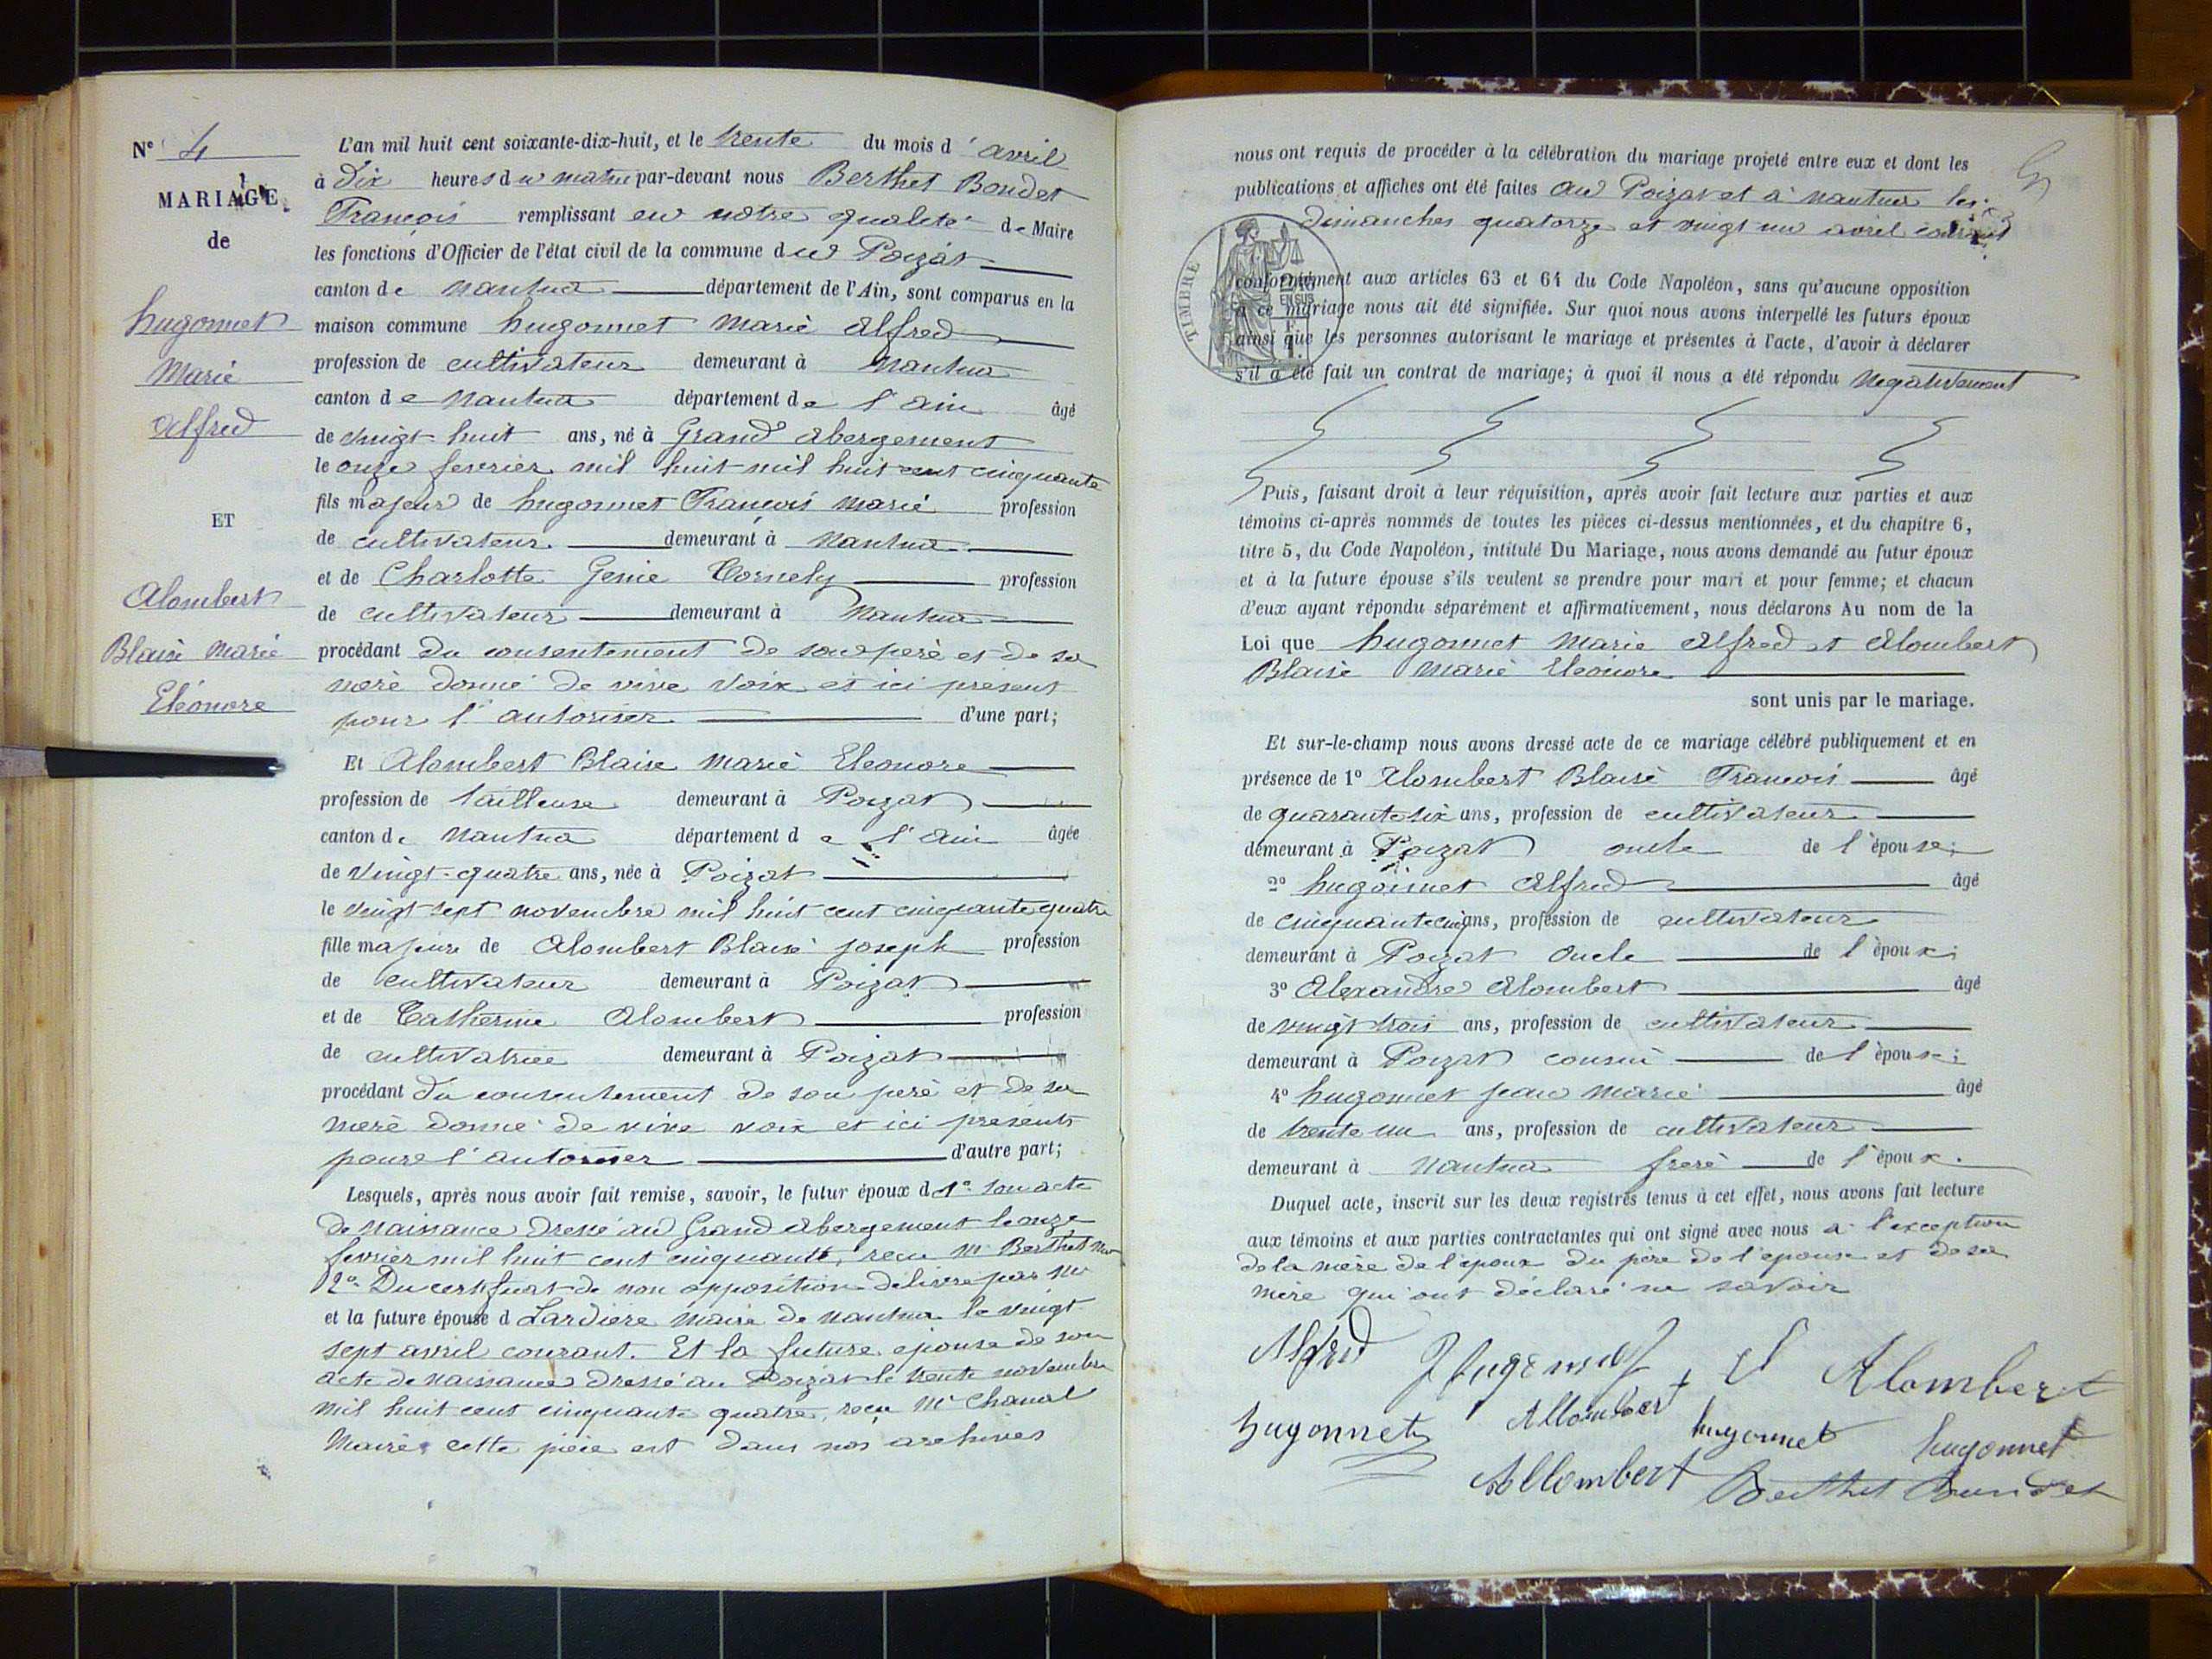 N° 4
MARIAGE
de
hugonnet
Marie
Alfred
ET
Alombert
Blaise Marie
Eléonore
L'an mil huit cent soixante-dix-huit, et le trente du mois d'avril
à Dix heures du matin par-devant nous Berthet Bondet
François remplissant en notre qualité de Maire
les fonctions d'Officier de l'état civil de la commune du Poizat
canton de Nantua département de l'Ain, sont comparus en la
maison commune hugonnet Marie Alfred
profession de cultivateur demeurant à Nantua
canton de Nantua département de l'ain âgé
de vingt huit ans, né à Grand abergement
le onze fevrier mil huit mil huit cent cinquante
fils majeur de hugonnet François Marie profession
de cultivateur demeurant à Nantua
et de Charlotte Genie Cornely profession
de cultivateur demeurant à Nantua
procédant du consentement de son père et de sa
mère donné de vive voix et ici present
pour l'autoriser d'une part;
Et Alombert Blaise Marie Eleonore
profession de tailleuse demeurant à Poizat
canton de Nantua département de l'ain âgée
de vingt-quatre ans, née à Poizat
le vingt sept novembre mil huit cent cinquante quatre
fille majeure de Alombert Blaise joseph profession
de cultivateur demeurant à Poizat
et de Catherine Alombert profession
de cultivatrice demeurant à Poizat
procédant du consentement de son père et de sa
mère donné de vive voix et ici présents
pour l'autoriser d'autre part;
Lesquels, après nous avoir fait remise, savoir, le futur époux d 1° son acte
de naissance dressé au Grand abergement le onze
fevrier mil huit cent cinquante, reçu Mr Berthet
2° Du certificat de non opposition delivré par Mr
et la future épouse d Lardière maire de Nantua le vingt
sept avril courant. Et la future épouse de son
acte de naissance dressé au Poizat le trente novembre
mil huit cent cinquante quatre, reçu Mr Chanal
Maire cette pièce est dans nos archives
nous ont requis de procéder à la célébration du mariage projeté entre eux et dont les
publications et affiches ont été faites au Poizat et à Nantua les
dimanches quatorze et vingt un avril courant
TIMBRE
conformément aux articles 63 et 64 du Code Napoléon, sans qu'aucune opposition
à ce mariage nous ait été signifiée. Sur quoi nous avons interpellé les futurs époux
ainsi que les personnes autorisant le mariage et présentes à l'acte, d'avoir à déclarer
s'il a été fait un contrat de mariage; à quoi il nous a été répondu négativement
Puis, faisant droit à leur réquisition, après avoir fait lecture aux parties et aux
témoins ci-après nommés de toutes les pièces ci-dessus mentionnées, et du chapitre 6,
titre 5, du Code Napoléon, intitulé Du Mariage, nous avons demandé au futur époux
et à la future épouse s'ils veulent se prendre pour mari et pour femme; et chacun
d'eux ayant répondu séparément et affirmativement, nous déclarons Au nom de la
Loi que hugonnet Marie Alfred et Alombert
Blaise Marie Eleonore
sont unis par le mariage.
Et sur-le-champ nous avons dressé acte de ce mariage célébré publiquement et en
présence de 1° Alombert Blaise François âgé
de quarante six ans, profession de cultivateur
demeurant à Poizat oncle de l'épouse;
2° hugonnet Alfred âgé
de cinquante cinq ans, profession de cultivateur
demeurant à Poizat oncle de l'époux;
3° Alexandre Alombert âgé
de vingt trois ans, profession de cultivateur
demeurant à Poizat cousin de l'épouse;
4° hugonnet jean Marie âgé
de trente un ans, profession de cultivateur
demeurant à Nantua frère de l'époux.
Duquel acte, inscrit sur les deux registres tenus à cet effet, nous avons fait lecture
aux témoins et aux parties contractantes qui ont signé avec nous à l'exception
de la mère de l'époux du père de l'épouse et de sa
mère qui ont déclaré ne savoir
Alfred Hugonnet E Alombert
hugonnet Allombert hugonnet hugonnet
Allombert Berthet Bondet